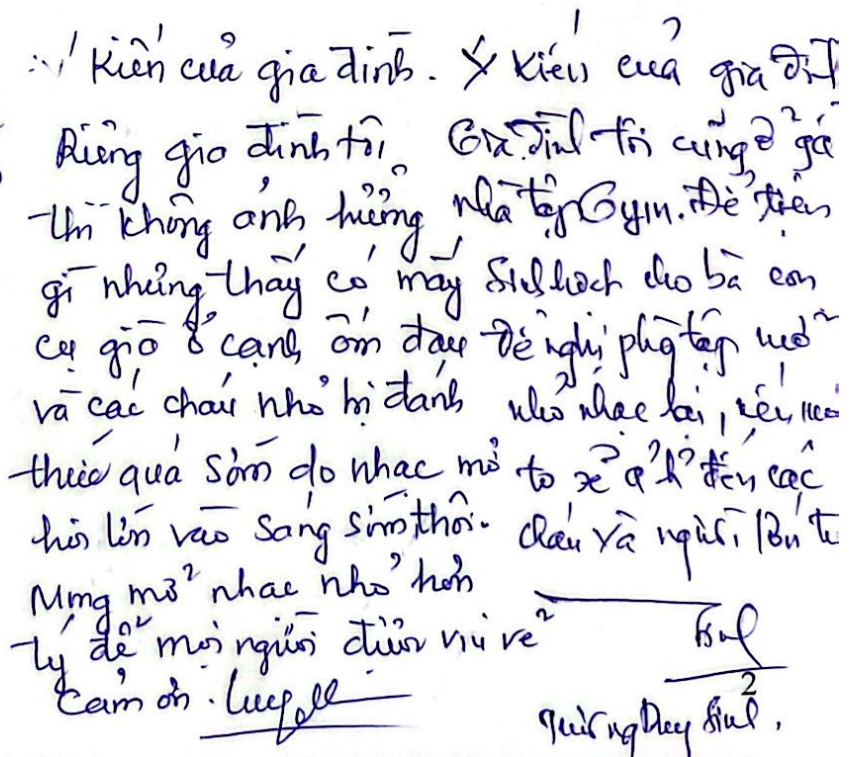 Ý Kiến của gia đình.
Riêng gia đình tôi
thì không ảnh hưởng
gì nhưng thấy có mấy
cụ già ở cạnh ốm đau
và các cháu nhỏ bị đánh
thức quá sớm do nhạc mở
hơi lớn vào sáng sớm thôi.
Mong mở nhạc nhỏ hơn
tý để mọi người được vui vẻ
Cảm ơn.
Ý kiến của gia đình
Gia đình tôi cũng ở gần
nhà tập Gym. Để tiện
Sinh hoạt cho bà con
Đề nghị phòng tập mở
nhỏ nhạc lại, nếu mở
to sẽ ả/h đến các
cháu và người lớn
2
Duy Sinh.